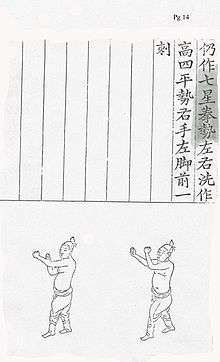 Pg 14
仍作七星拳勢左右洗作
高四平勢右手左脚前一
刺